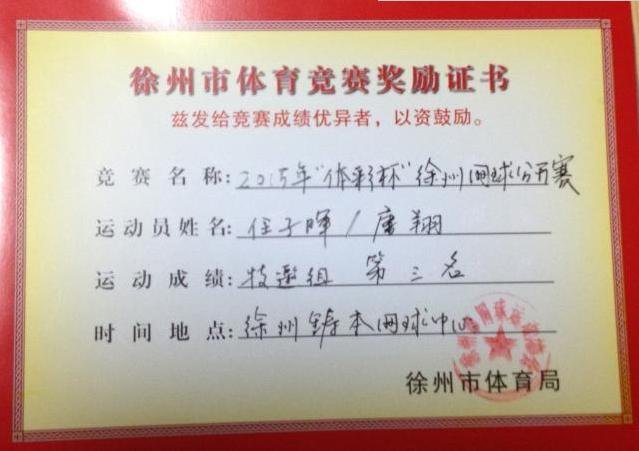 徐州市体育竞赛奖励证书
兹发给竞赛成绩优异者，以资鼓励。
竞赛名称:2015年“体彩杯”徐州网球公开赛
运动员姓名:任子晖/唐翔
运动成绩:特邀组 第三名
时间地点:徐州铸本网球中心
徐州市体育局